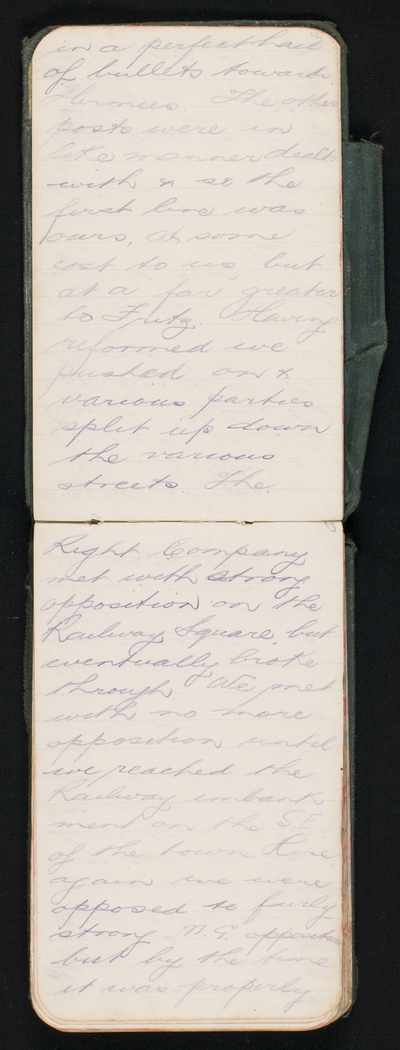 in a perfect hail
of bullets towards
Hermies. The other
posts were in
like manner dealt
with & so the
first line was
ours, at some
cost to us but
at a far greater
to Fritz. Having
reformed we
pushed on &
various parties
split up down
the various
streets. The
Right Company
met with strong
opposition on the
Railway Square but
eventually broke
through We met
with no more
opposition until
we reached the
Railway embank
ment on the S.E.
of the town Here
again we were
opposed to fairly
strong M.G. opposition
but by the time
it was properly